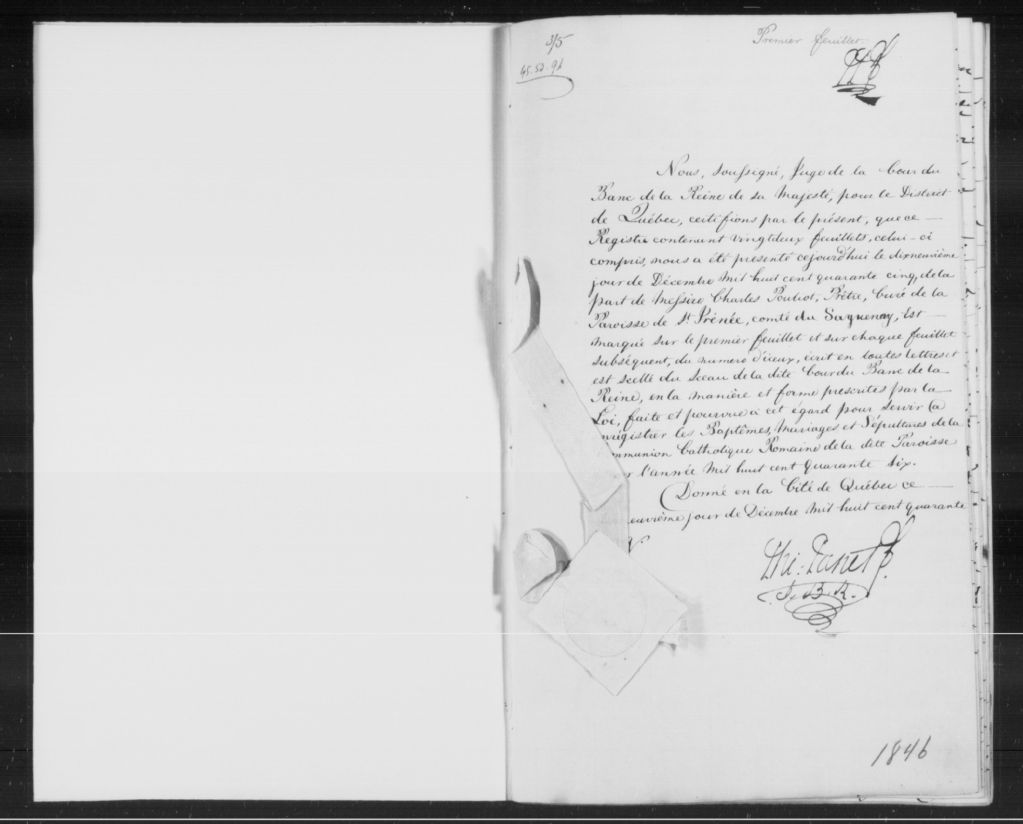 3/5
Premier feuillet
45.53.91
Nous, soussigné, Juge de la Cour du
Banc de la Reine de sa Majesté, pour le District
de Québec, certifions par le présent, que ce
Registre contenant vingtdeux feuillets, celui-ci
compris, nous a été présenté cejourd'hui le dixneuvième
jour de Décembre mil huit cent quarante cinq, de la
part de Messire Charles Pouliot, Prêtre, Curé de la
Paroisse de St Irénée, comté du Saguenay, Est
marqué sur le premier feuillet et sur chaque feuillet
subséquent, du numero d'iceux, écrit en toutes lettres et
est scellé du sceau de la dite Cour du Banc de la
Reine, en la manière et forme prescrites par la
Loi, faite et pourvue à cet égard pour servir à
enrégistrer les Baptêmes, Mariages et Sépultures de la
ommunion Catholique Romaine de la dite Paroisse
r l'année mil huit cent quarante six.
Donné en la Cité de Québec ce
euvième jour de Décembre mil huit cent quarante
Phi: Panet
J. B. R.
1846